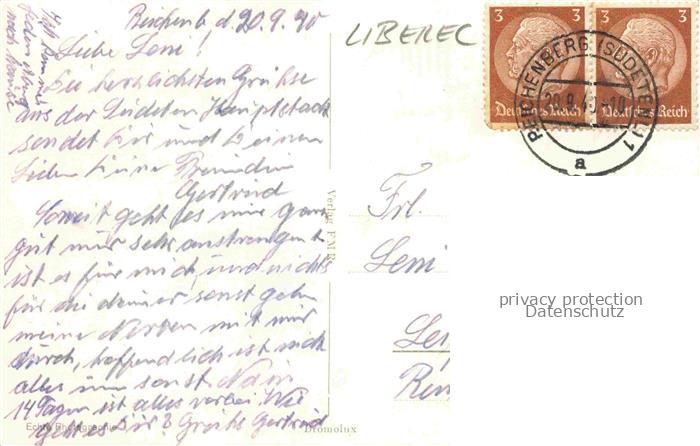 Reichenb. d. 20.9.40
Liebe Leni!
Die herzlichsten Grüsse
aus der Sudeten Hauptstadt
sendet Dir und Deinen
Lieben Deine Freundin
Gertrud
Soweit geht es mir ganz
gut nur sehr anstrengend
ist es für mich, und nichts
für die dauer sonst gehn
meine Nerven mit mir
durch, hoffendlich ist nich
alles um sonst. Na in
14 Tagen ist alles vorbei. Wie
geht es Dir? Grüße Gertrud
nach Hause
Echte Photographie
Bromolux
Verlag
LIBEREC
3 3
Deutsches Reich Deutsches Reich
REICHENBERG (SUDETENL) 1
a
Frl.
Leni
privacy protection
Datenschutz